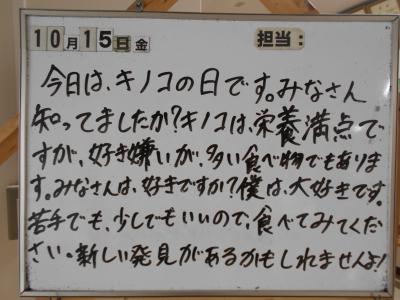 10月15日金 担当:
今日は、キノコの日です。みなさん
知ってましたか?キノコは、栄養満点で
すが、好き嫌いが、多い食べ物でもありま
す。みなさんは、好きですか?僕は、大好きです。
苦手でも、少しでもいいので、食べてみてくだ
さい。新しい発見があるかもしれませんよ!